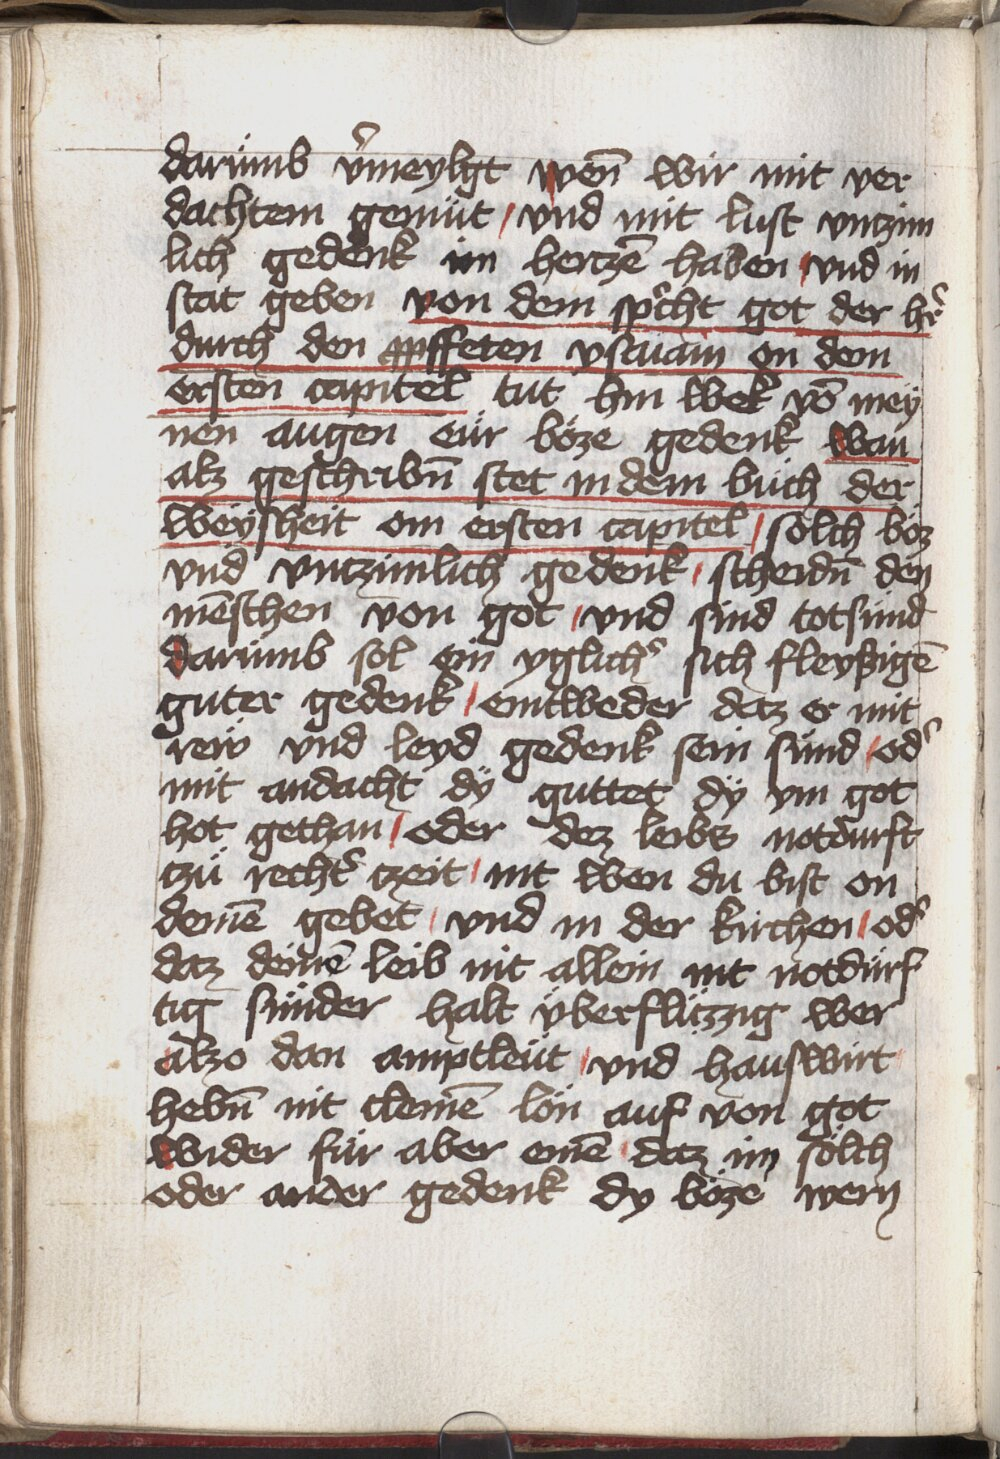 darümb v̄meylgt wen̄ wir mit ver
dachtem gemüt / vnd mit lust vntzim
lich gedenk im hertzē haben / vnd in
stat geben von dem sp̄cht got der hr̄
durch den ppffeten ysaiam on dem
ersten capitel tut hin wek vō mey
nen augen eür böze gedenk wan
alz geschribn̄ stet in dem büch der
weÿsheit om ersten capitel / sölch böz
vnd vntzimlich gedenk / scheidn̄ den
mēschen von got / vnd sind totsünd
Darümb sol ein yglich̄s sich fleyßigē
guter gedenk / eintweder daz er mit
reiv vnd leyd gedenk sein sünd / od̄
mit andacht dÿ guttet dÿ ym got
hot gethan / oder dez leibs notdurft
czü recht̄ czeit / nit wen du bist on
deinē gebet / vnd in der kirchen / od̄
daz deinē leib nit allein nit notdürf
tig sünder halt vberflüzzig wer
alzo dan amptleüt / vnd hauswirt
hebn̄ nit cleinē lön auf von got
wider für aber einē / daz im sölch
oder ander gedenk dy böze wern